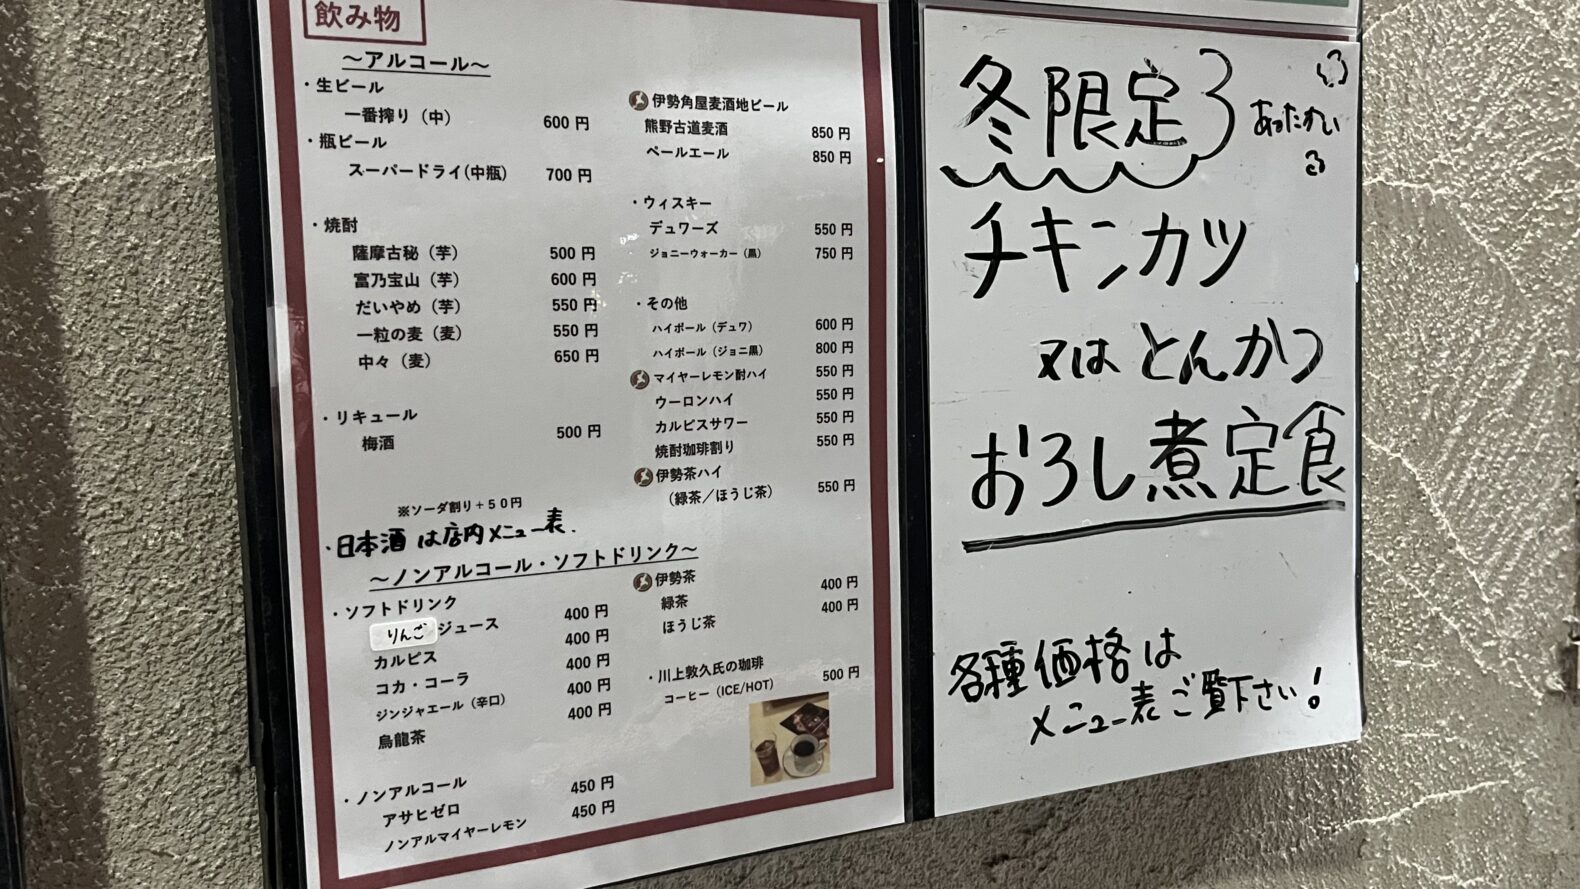 飲み物
～アルコール～
・生ビール
一番搾り（中） 600 円
・瓶ビール
スーパードライ(中瓶) 700 円
・焼酎
薩摩古秘（芋） 500 円
富乃宝山（芋） 600 円
だいやめ（芋） 550 円
一粒の麦（麦） 550 円
中々（麦） 650 円
・リキュール
梅酒 500 円
※ソーダ割り＋５０円
・日本酒は店内メニュー表.
伊勢角屋麦酒地ビール
熊野古道麦酒 850 円
ペールエール 850 円
・ウィスキー
デュワーズ 550 円
ジョニーウォーカー（黒） 750 円
・その他
ハイボール（デュワ） 600 円
ハイボール（ジョニ黒） 800 円
マイヤーレモン酎ハイ 550 円
ウーロンハイ 550 円
カルピスサワー 550 円
焼酎珈琲割り 550 円
伊勢茶ハイ
（緑茶／ほうじ茶） 550 円
～ノンアルコール・ソフトドリンク～
・ソフトドリンク
りんごジュース 400 円
カルピス 400 円
コカ・コーラ 400 円
ジンジャエール（辛口） 400 円
烏龍茶 400 円
・ノンアルコール
アサヒゼロ 450 円
ノンアルマイヤーレモン 450 円
伊勢茶
緑茶 400 円
ほうじ茶 400 円
・川上敦久氏の珈琲
コーヒー（ICE/HOT） 500 円
冬限定
あったかい
チキンカツ
又はとんかつ
おろし煮定食
各種価格は
メニュー表ご覧下さい！